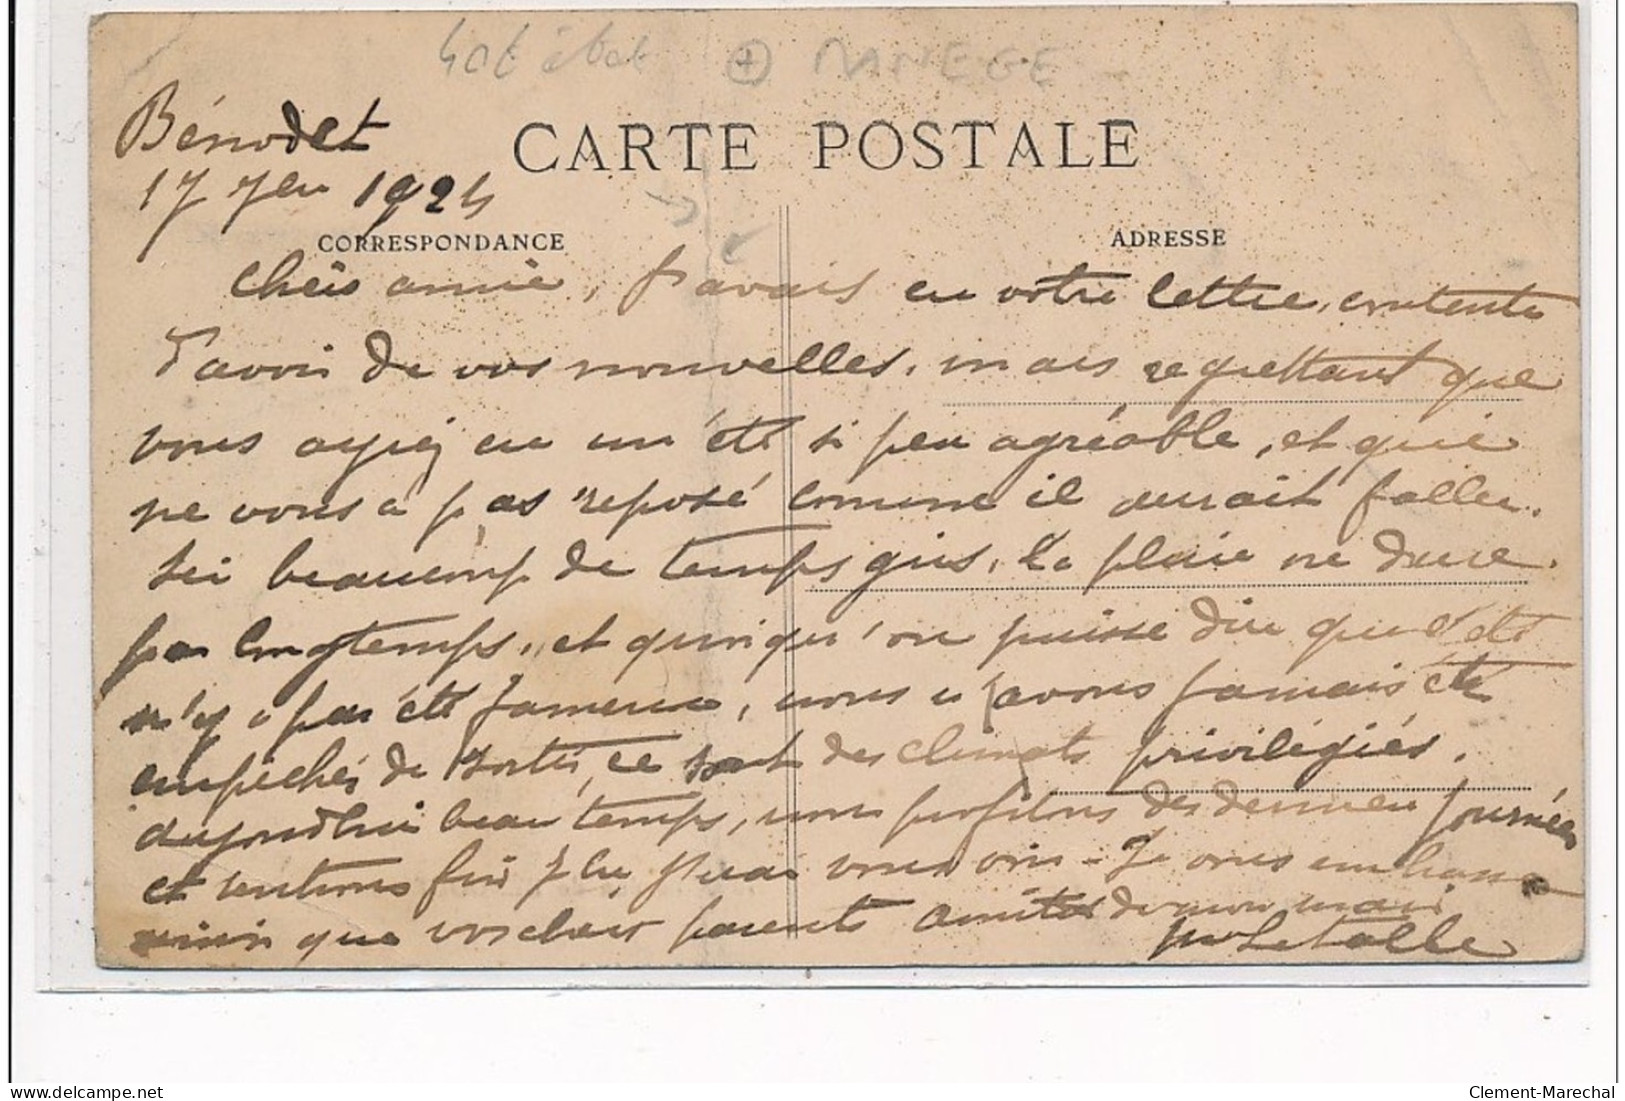 MANEGE
Bénodet
CARTE POSTALE
17 7bre 1924
CORRESPONDANCE
ADRESSE
Chère amie, j'avais eu votre lettre, contente
d'avoir de vos nouvelles, mais regrettant que
vous ayiez eu un été si peu agréable, et qui
ne vous a pas reposé comme il aurait fallu.
Ici beaucoup de temps gris, la pluie ne dure
pas longtemps, et quoiqu'on puisse dire que l'été
n'y a pas été fameux, nous n'avons jamais été
empêchés de sortir, ce sont des climats privilégiés.
aujourd'hui beau temps, nous profitons des dernières journées
et rentrons fin Je vous embrasse
ainsi que vos chers parents amitiés de mon mari
Letallec
Clement-Marechal
delcampe.net